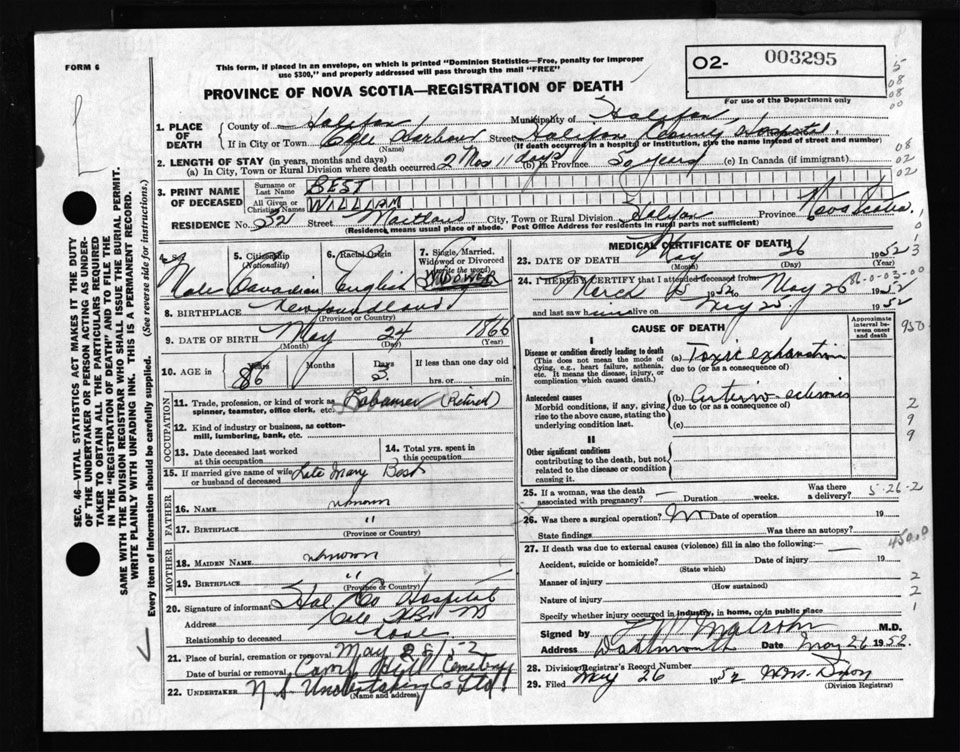 FORM 6
This form, if placed in an envelope, on which is printed "Dominion Statistics—Free, penalty for improper
use $300," and properly addressed will pass through the mail "FREE"
PROVINCE OF NOVA SCOTIA—REGISTRATION OF DEATH
02- 003295
For use of the Department only
1. PLACE OF DEATH
County of Halifax Municipality of Halifax
If in City or Town Cole Harbour Street Halifax County Hospital
(Name) (If death occurred in a hospital or institution, give the name instead of street and number)
2. LENGTH OF STAY (in years, months and days)
(a) In City, Town or Rural Division where death occurred 2 Mos 11 days (b) In Province 50 years (c) In Canada (if immigrant)
3. PRINT NAME OF DECEASED
Surname or Last Name BEST
All Given or Christian Names WILLIAM
RESIDENCE No. 252 Street Maitland City, Town or Rural Division Halifax Province Nova Scotia
(Residence means usual place of abode. Post Office Address for residents in rural parts not sufficient)
4. Sex
Male
5. Citizenship (Nationality)
Canadian
6. Racial Origin
English
7. Single, Married, Widowed or Divorced (write the word)
WIDOWER
8. BIRTHPLACE Newfoundland
(Province or Country)
9. DATE OF BIRTH May 24 1866
(Month) (Day) (Year)
10. AGE in 86 Years Months 3 Days If less than one day old
hrs. or min.
OCCUPATION
11. Trade, profession or kind of work as spinner, teamster, office clerk, etc. (Retired)
12. Kind of industry or business, as cotton-mill, lumbering, bank, etc.
13. Date deceased last worked at this occupation
14. Total yrs. spent in this occupation
15. If married give name of wife or husband of deceased Late Mary Best
FATHER
16. Name unknown
17. Birthplace "
(Province or Country)
MOTHER
18. Maiden Name unknown
19. Birthplace "
(Province or Country)
20. Signature of informant Hal. Co Hospital
Address Cole Hbr NS
Relationship to deceased none
21. Place of burial, cremation or removal
Date of burial or removal
May 28/52
Camp Hill Cemetery
22. UNDERTAKER N.S. Undertaking Co Ltd
(Name and address)
MEDICAL CERTIFICATE OF DEATH
23. DATE OF DEATH May 26 1952
(Month) (Day) (Year)
24. I HEREBY CERTIFY that I attended deceased from
March 15 1952 to May 26 1952
and last saw him alive on May 25 1952
86-0-03-00
CAUSE OF DEATH
Approximate interval between onset and death
I
Disease or condition directly leading to death
(This does not mean the mode of dying, e.g., heart failure, asthenia, etc. It means the disease, injury, or complication which caused death.)
(a) Toxic exhaustion
due to (or as a consequence of)
Antecedent causes
Morbid conditions, if any, giving rise to the above cause, stating the underlying condition last.
(b) Arterio sclerosis
due to (or as a consequence of)
(c)
II
Other significant conditions
contributing to the death, but not related to the disease or condition causing it.
25. If a woman, was the death associated with pregnancy? — Duration weeks. Was there a delivery?
5-26-2
26. Was there a surgical operation? No Date of operation 19
State findings Was there an autopsy?
27. If death was due to external causes (violence) fill in also the following:—
Accident, suicide or homicide? Date of injury 19
(State which)
Manner of injury
(How sustained)
Nature of injury
Specify whether injury occurred in industry, in home, or in public place
Signed by M.D.
Address Dartmouth Date May 26 1952
28. Division Registrar's Record Number
29. Filed May 26 1952
(Division Registrar)
SEC. 46—VITAL STATISTICS ACT MAKES IT THE DUTY
OF THE UNDERTAKER OR PERSON ACTING AS UNDER-
TAKER TO OBTAIN ALL THE PARTICULARS REQUIRED
IN THE "REGISTRATION OF DEATH" AND TO FILE THE
SAME WITH THE DIVISION REGISTRAR WHO SHALL ISSUE THE BURIAL PERMIT.
WRITE PLAINLY WITH UNFADING INK. THIS IS A PERMANENT RECORD.
Every item of information should be carefully supplied. (See reverse side for instructions.)